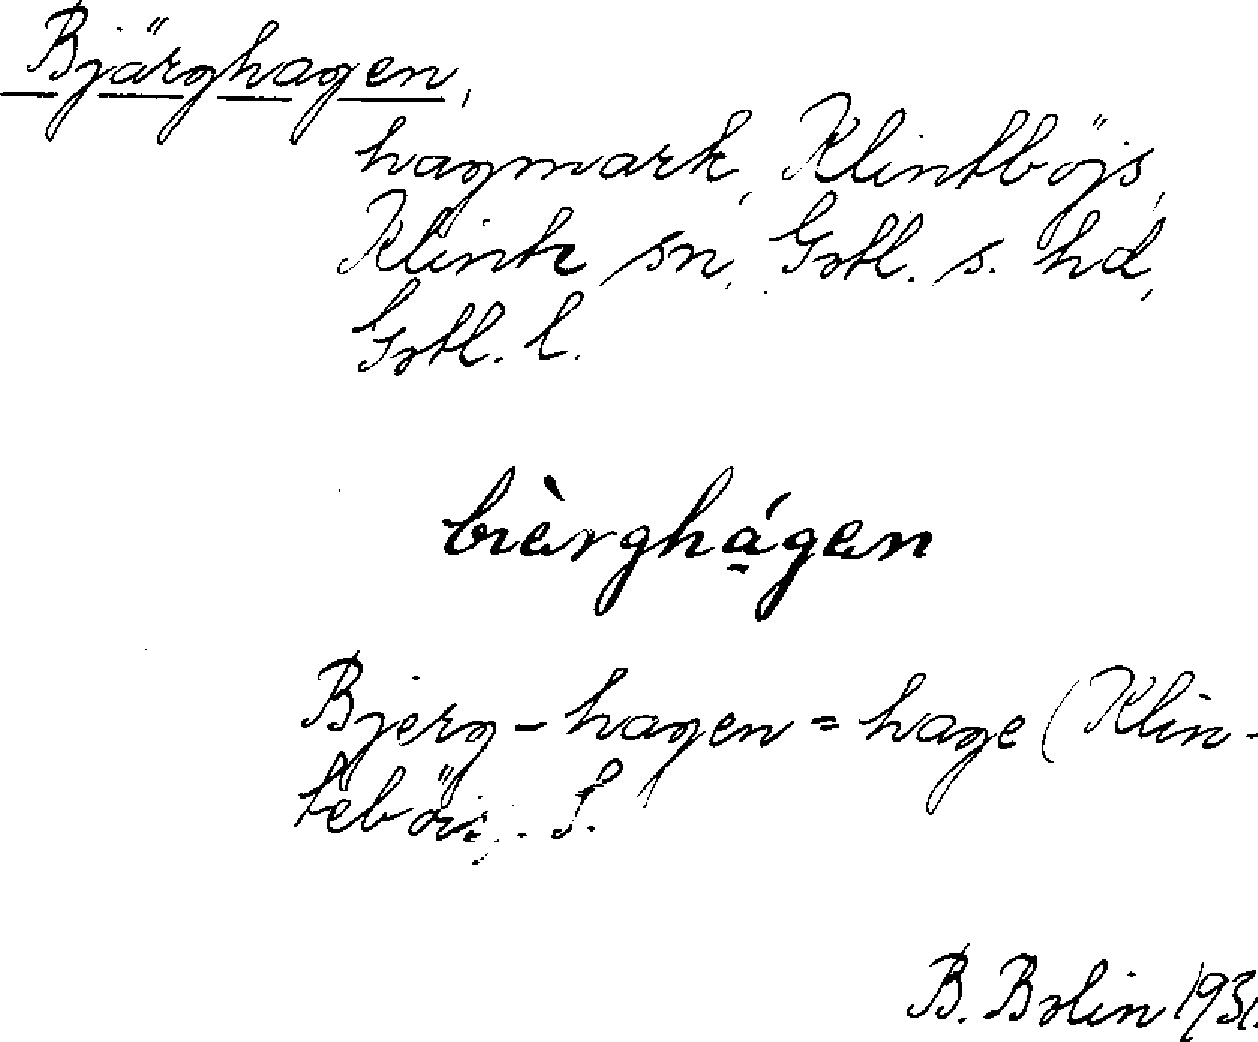 Bjärghagen,
hagmark, Klintböjs,
Klinte sn, Gotl. s. hd,
Gotl. l.
bièrghágen
Bjerg-hagen = hage (Klin-
teböis. S.
B. Bolin 1931.